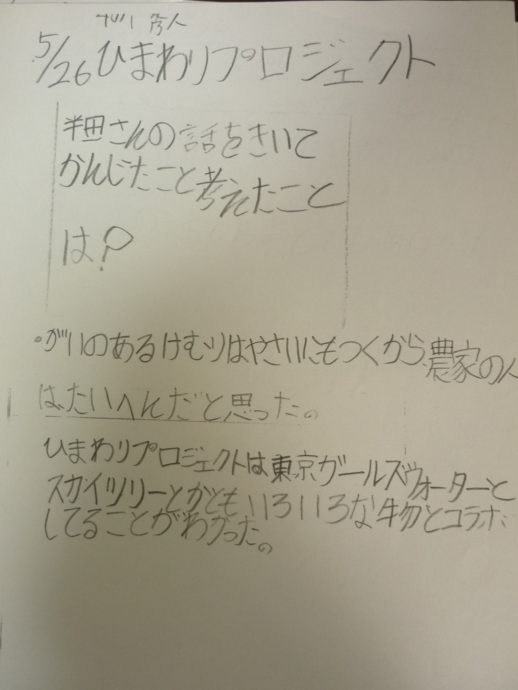 5/26ひまわりプロジェクト
半田さんの話をきいて
かんじたこと考えたこと
は?
・がいのあるけむりはやさいにもつくから農家の人
はたいへんだと思った。
ひまわりプロジェクトは東京ガールズウォーターと
スカイツリーとかともいろいろな物とコラボ
してることがわかった。